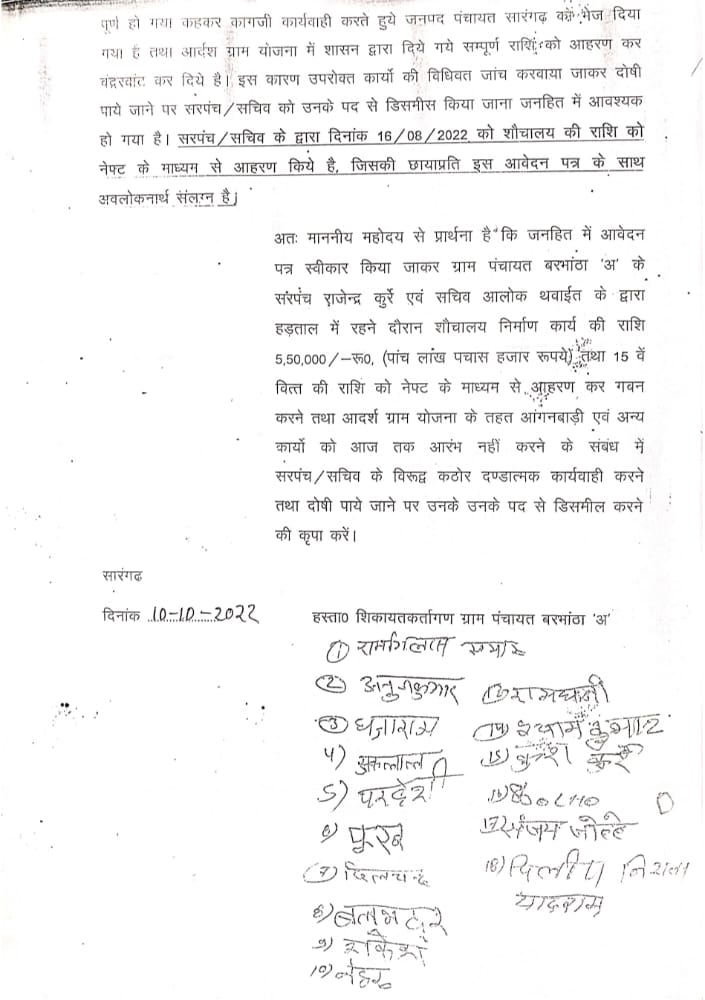 पूर्ण हो गया कहकर कागजी कार्यवाही करते हुये जनपद पंचायत सारंगढ़ को भेज दिया
गया है तथा आर्दश ग्राम योजना में शासन द्वारा दिये गये सम्पूर्ण राशि को आहरण कर
बंदरबांट कर दिये है। इस कारण उपरोक्त कार्यो की विधिवत जांच करवाया जाकर दोषी
पाये जाने पर सरपंच/सचिव को उनके पद से डिसमीस किया जाना जनहित में आवश्यक
हो गया है। सरपंच/सचिव के द्वारा दिनांक 16/08/2022 को शौचालय की राशि को
नेफ्ट के माध्यम से आहरण किये है, जिसकी छायाप्रति इस आवेदन पत्र के साथ
अवलोकनार्थ संलग्न है।
अतः माननीय महोदय से प्रार्थना है कि जनहित में आवेदन
पत्र स्वीकार किया जाकर ग्राम पंचायत बरभांठा 'अ' के
सरपंच राजेन्द्र कुर्रे एवं सचिव आलोक थवाईत के द्वारा
हड़ताल में रहने दौरान शौचालय निर्माण कार्य की राशि
5,50,000/-रू0, (पांच लांख पचास हजार रूपये) तथा 15 वें
वित्त की राशि को नेफ्ट के माध्यम से आहरण कर गबन
करने तथा आदर्श ग्राम योजना के तहत आंगनबाड़ी एवं अन्य
कार्यो को आज तक आरंभ नहीं करने के संबंध में
सरपंच/सचिव के विरूद्व कठोर दण्डात्मक कार्यवाही करने
तथा दोषी पाये जाने पर उनके उनके पद से डिसमील करने
की कृपा करें।
सारंगढ
दिनांक 10-10-2022 हस्ता0 शिकायतकर्तागण ग्राम पंचायत बरभांठा 'अ'
1)
2) अनुजकुमार
3) धनाराम
4)
5) परदेशी
6)
7) दिलचन्द
8)
9) राकेश
10) नेहरू
रामधनी
14) श्याम कुमार
15)
17) संजय जोल्हे
18) दिलीप
यादराम